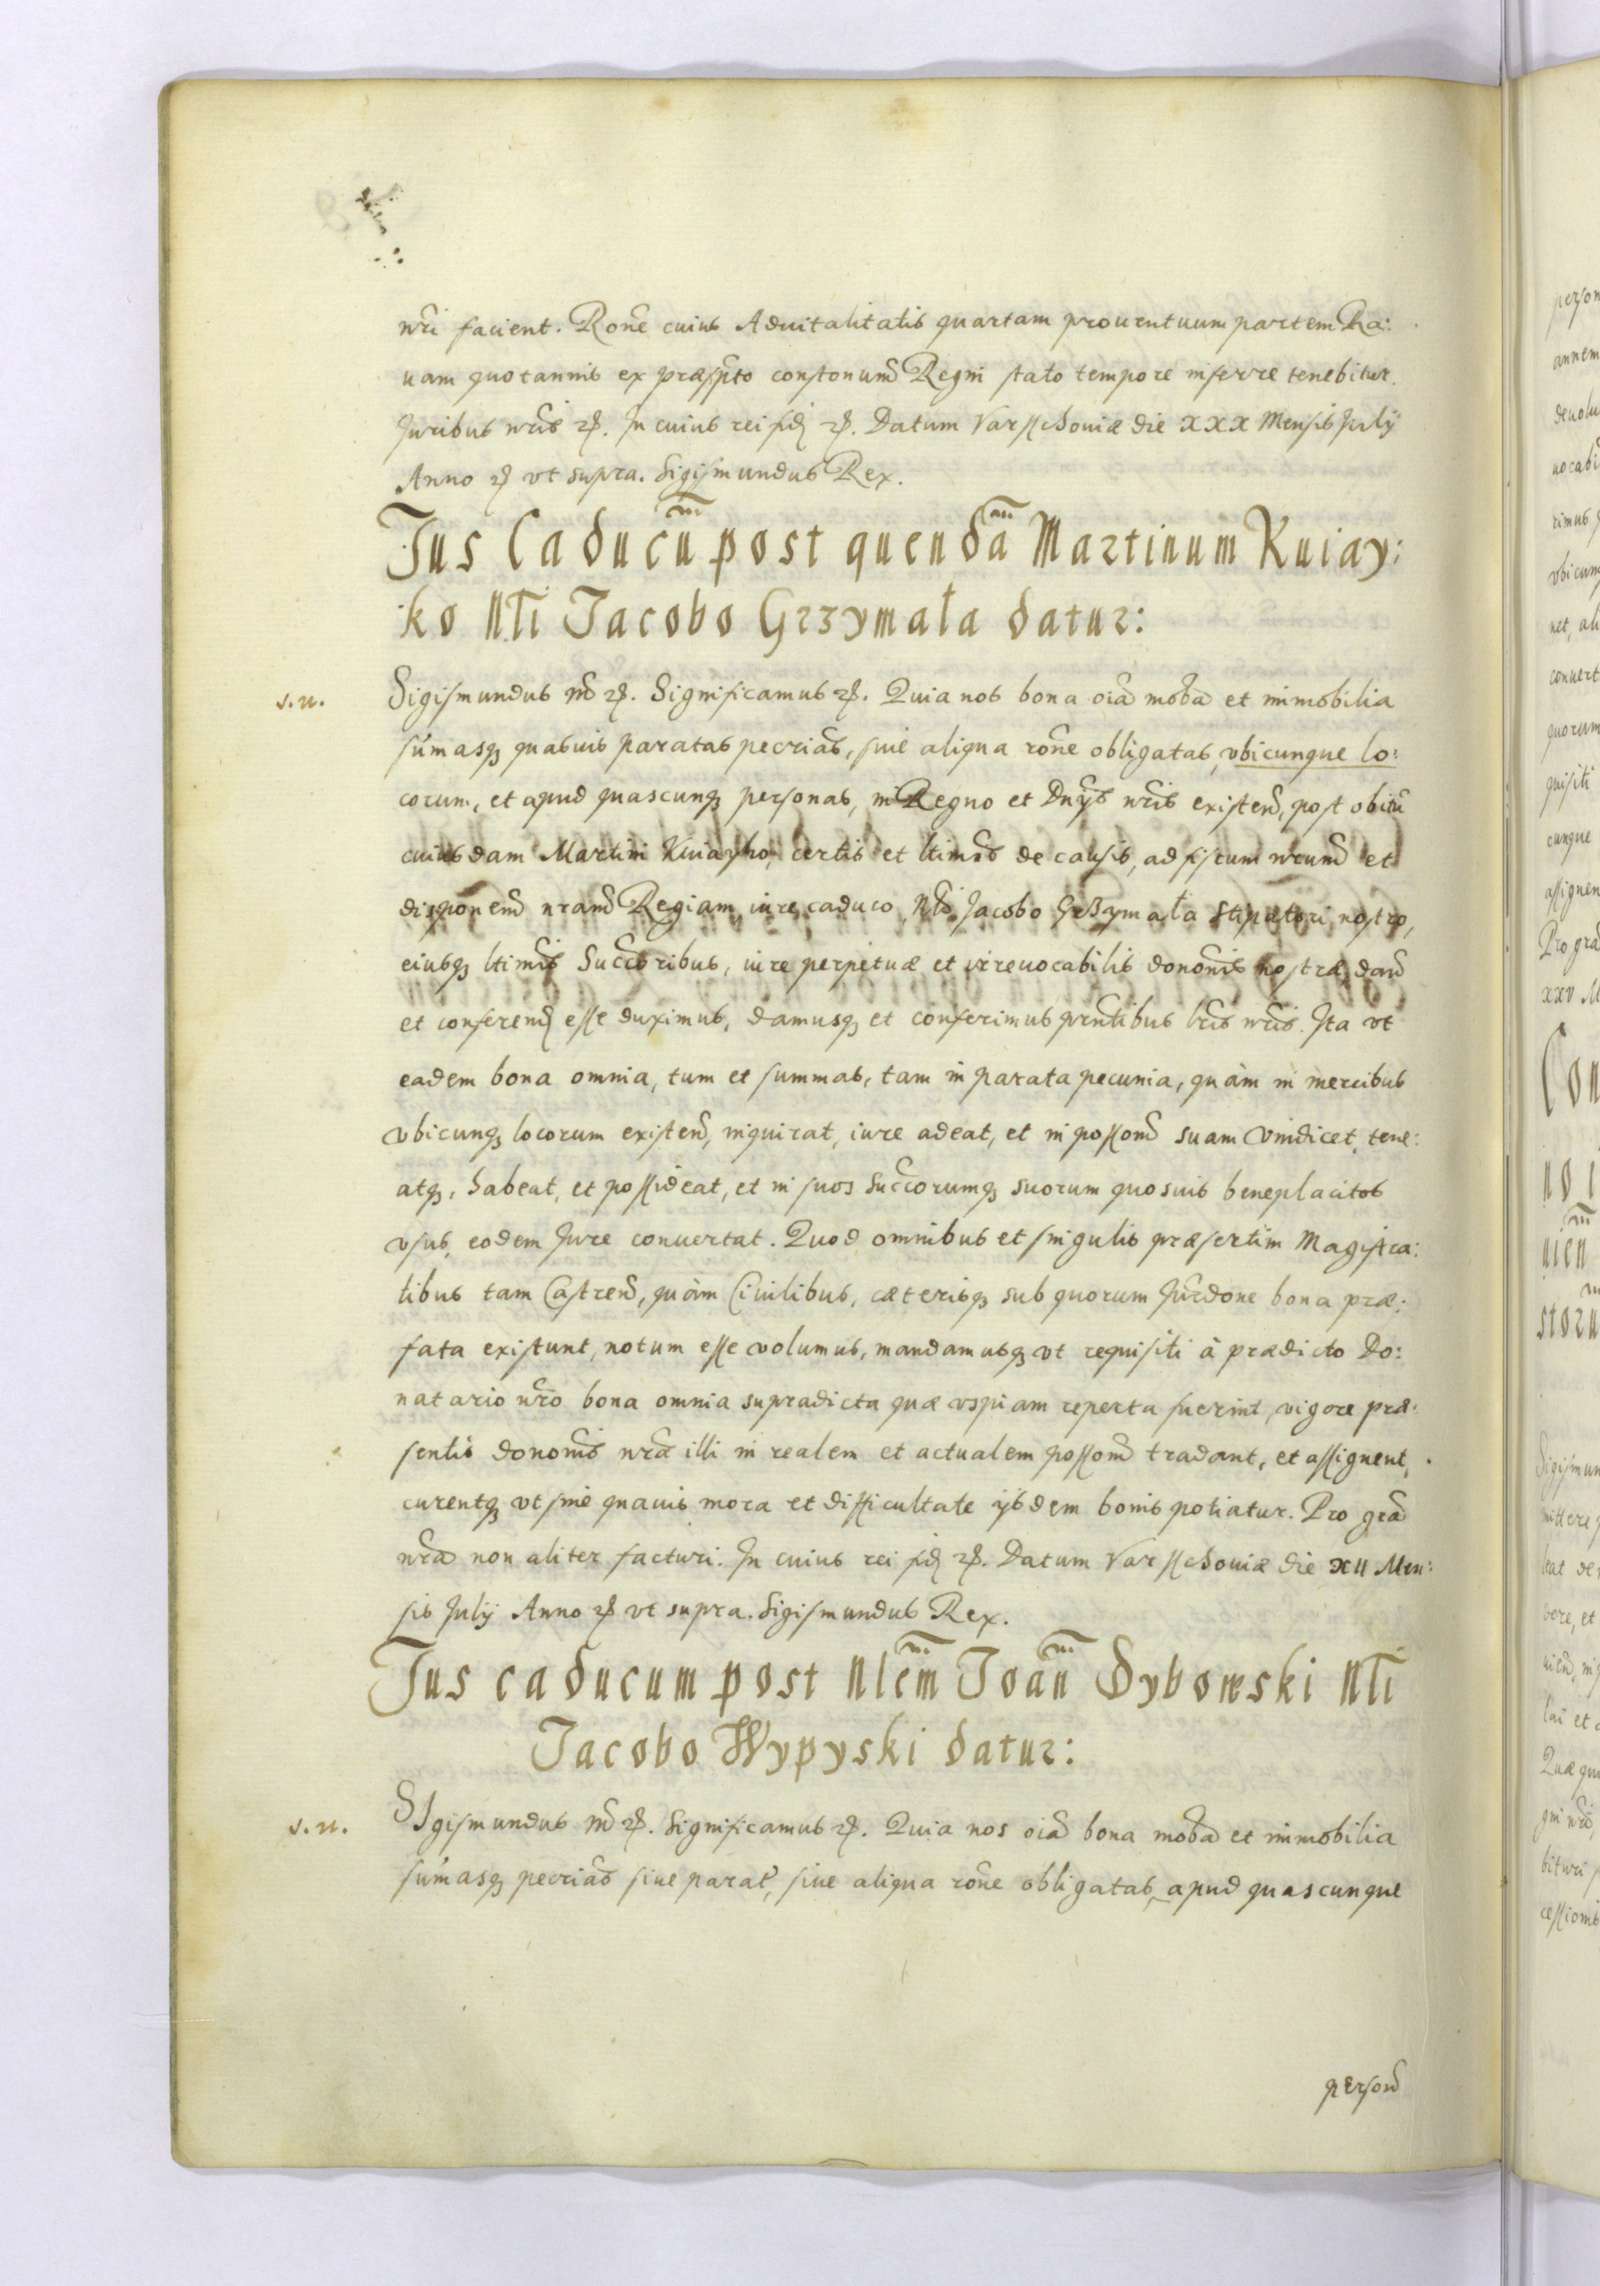 nri facient. Rone cuius Aduitalitatis quartam prouentuum partem Ra:
uam quotannis ex præscpto constonum Regni stato tempore inferre tenebitur.
Juribus nris etc. In cuius rei fid etc. Datum Varsschouiæ die XXX Mensis Julij
Anno etc ut supra. Sigismundus Rex.
Jus Caducum post quendam Martinum Kuiay:
ko Nli Jacobo Grzymała datur:
s. n.
Sigismundus mD etc. Significamus etc. Quia nos bona oia moba et immobilia
sumasq quasuis paratas pecrias, siue aliqua rone obligatas, vbicunque lo:
corum, et apud quascunq personas, in Regno et Dnijs nris existen, post obitu
cuiusdam Martini Kuiayko, certis et ltimis de causis, ad fiscum nrum et
disponem nram Regiam iure caduco Nlo Jacobo Grzymała Stipatori nostro,
eiusq ltimis Succoribus, iure perpetuæ et irreuocabilis dononis nostræ dan
et conferend esse duximus, damusq et conferimus prntibus lris nris. Ita vt
eadem bona omnia, tum et summas, tam in parata pecunia, quàm in mercibus
vbicunq locorum existen, inquirat, iure adeat, et in posson suam vindicet, tene:
atq, habeat, et possideat, et in suos Succorumq suorum quosuis beneplacitos
vsus, eodem Jure conuertat. Quod omnibus et singulis præsertim Magistra:
tibus tam Castren, quàm Ciuilibus, cæterisq sub quorum Jurdone bona præ:
fata existunt, notum esse volumus, mandamusq vt requisiti à prædicto Do:
natario nro bona omnia supradicta quæ vspiam reperta fuerint, vigore præ:
sentis dononis nræ illi in realem et actualem posson tradant, et assignent,
curentq vt sine quauis mora et difficultate ijsdem bonis potiatur. Pro gra
nra non aliter facturi. In cuius rei fid etc. Datum Varsschouiæ die XII Men:
sis Julij Anno etc vt supra. Sigismundus Rex.
Jus caducum post Nlem Joan Dybowski Nli
Jacobo Wypyski datur:
s. n.
SIgismundus mD etc. Significamus etc. Quia nos oia bona moba et immobilia
sumasq pecrias siue parat, siue aliqua rone obligatas, apud quascunque
person